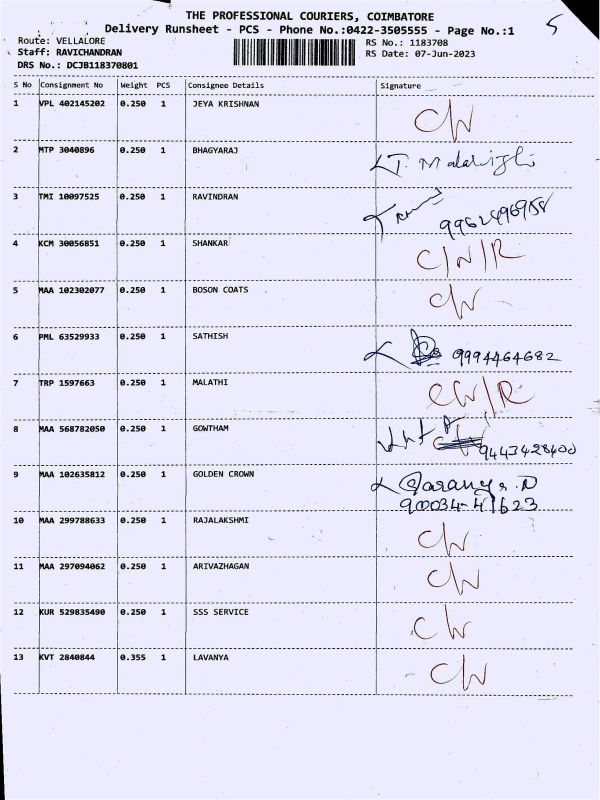 THE PROFESSIONAL COURIERS, COIMBATORE
5
Delivery Runsheet - PCS - Phone No.:0422-3505555 - Page No.:1
Route: VELLALORE
RS No.: 1183708
Staff: RAVICHANDRAN
RS Date: 07-Jun-2023
DRS No.: DCJB118370801
S No Consignment No Weight PCS Consignee Details Signature
1 VPL 402145202 0.250 1 JEYA KRISHNAN C/W
2 MTP 3040896 0.250 1 BHAGYARAJ
3 TMI 10097525 0.250 1 RAVINDRAN 9962496958
4 KCM 30056851 0.250 1 SHANKAR C/N/R
5 MAA 102302077 0.250 1 BOSON COATS C/W
6 PML 63529933 0.250 1 SATHISH 9994464682
7 TRP 1597663 0.250 1 MALATHI CW/R
8 MAA 568782050 0.250 1 GOWTHAM 9443428400
9 MAA 102635812 0.250 1 GOLDEN CROWN
90034-41623
10 MAA 299788633 0.250 1 RAJALAKSHMI C/W
11 MAA 297094062 0.250 1 ARIVAZHAGAN C/W
12 KUR 529835490 0.250 1 SSS SERVICE C/W
13 KVT 2840844 0.355 1 LAVANYA C/W